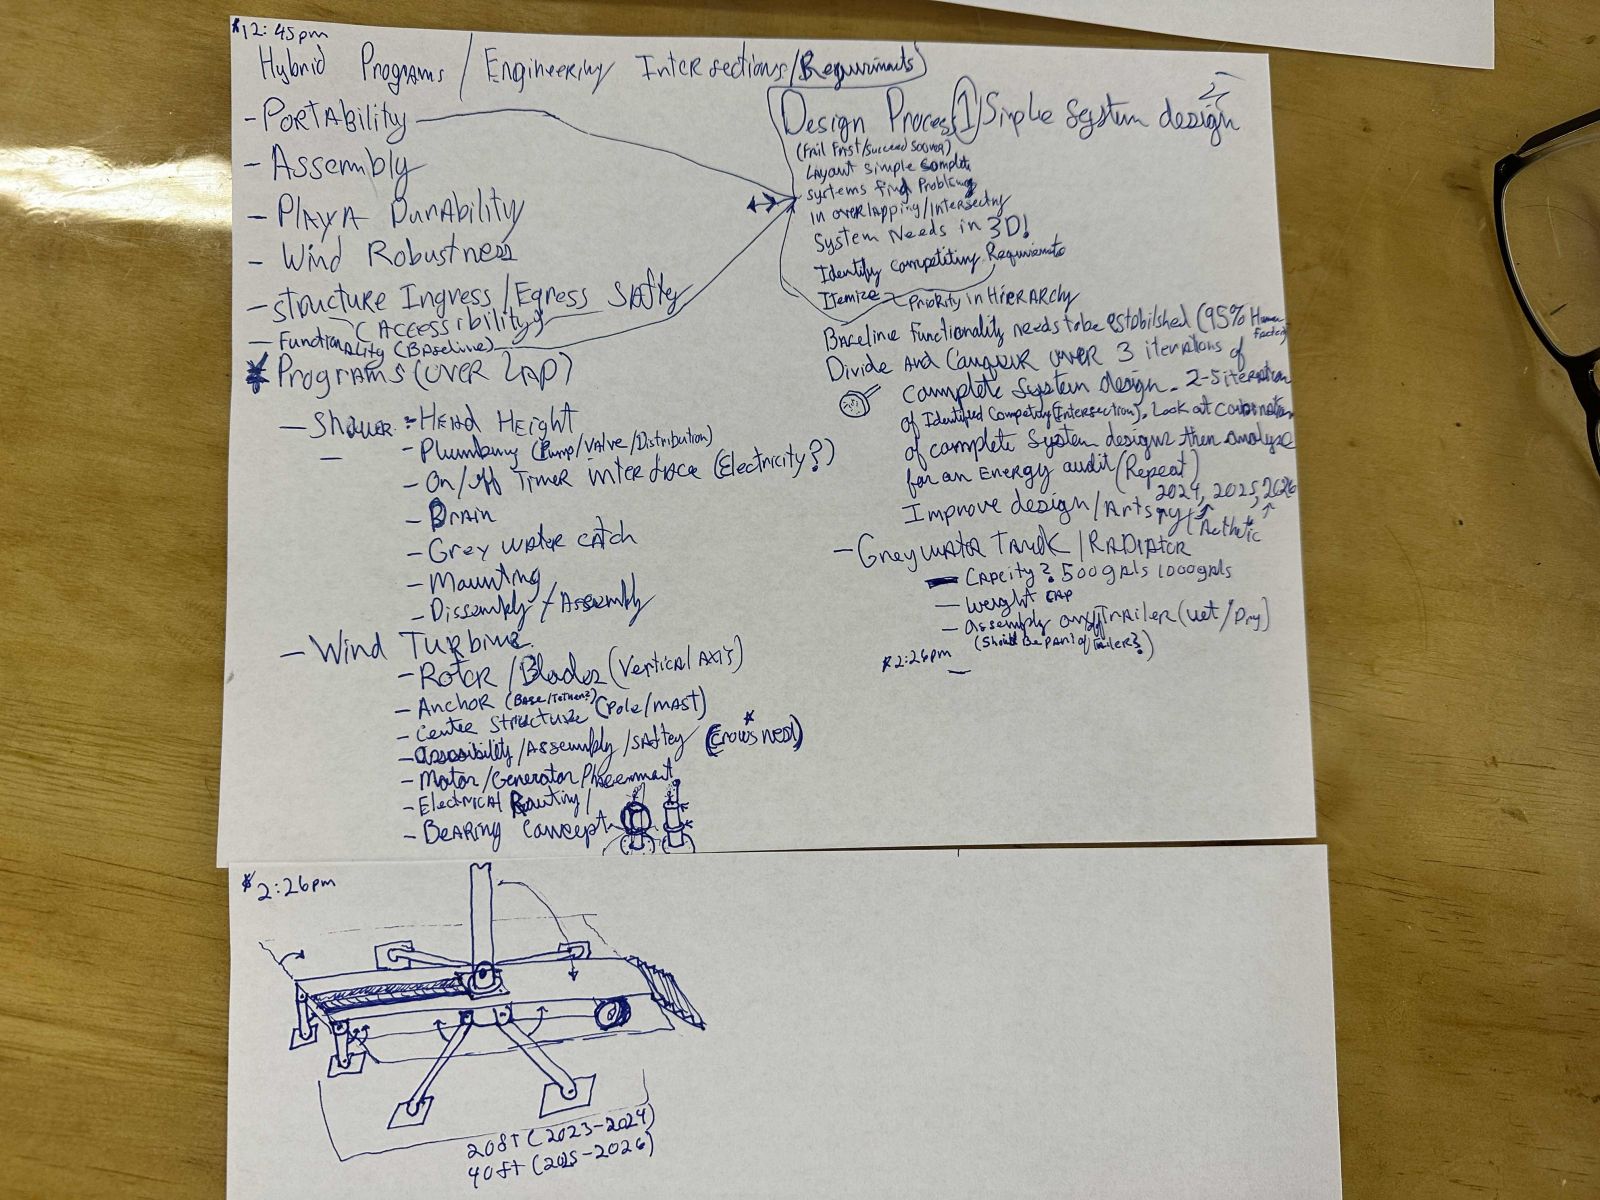 *12:45pm
Hybrid Programs / Engineering Intersections/Requirments
- PORTAbility
- Assembly
- PlAYA DurAbility
- Wind Robustness
- Structure Ingress / Egress Saftey
(Accessibility)
- Functionality (BAseline)
* Programs (OVER LAP)
- Shower :- HEAD HEIGHT
- Plumbing (Pump/VAlve/Distribution)
- On/off TIMER interface (Electricity?)
- DRAIN
- Grey water catch
- Mounting
- Dissembly / Assembly
- Wind TURbine
- RotOR / Blades (Vertical AXIS)
- Anchor (BASE/Tether?)
- Center Structure (Pole / MAST)
- assosibility /Assembly /SAftey (Crows nest)
- Motor / Generator Placemment
- Electrical Routing /
- BEARING Concept
Design Process 1 Simple System design
(FAil FAst/Succeed Sooner)
LAyout simple complete
systems find Problems
in overlapping / Intersecting
System Needs in 3D!
Identify competiting Requirements
Itemize Priority in HIERARCHy
Baseline Functionality needs to be estobilshed (95% Human
Factors)
Divide And Conquer over 3 iterations of
complete System design - 2-5 iteration
of Identified Competing (Intersection), Look at combination
of complete System designs then analyze
for an Energy audit (Repeat)
2024, 2025, 2026
Improve design / Artsy
- Grey water TANK / RADIATOR
- CApcity? 500gals 1000gals
- weight CAP
- assembly on/off TRAILER (Wet / Dry)
(Should Be part of Trailer?)
*2:26pm
* 2:26pm
20ft (2023-2024)
40ft (2025-2026)